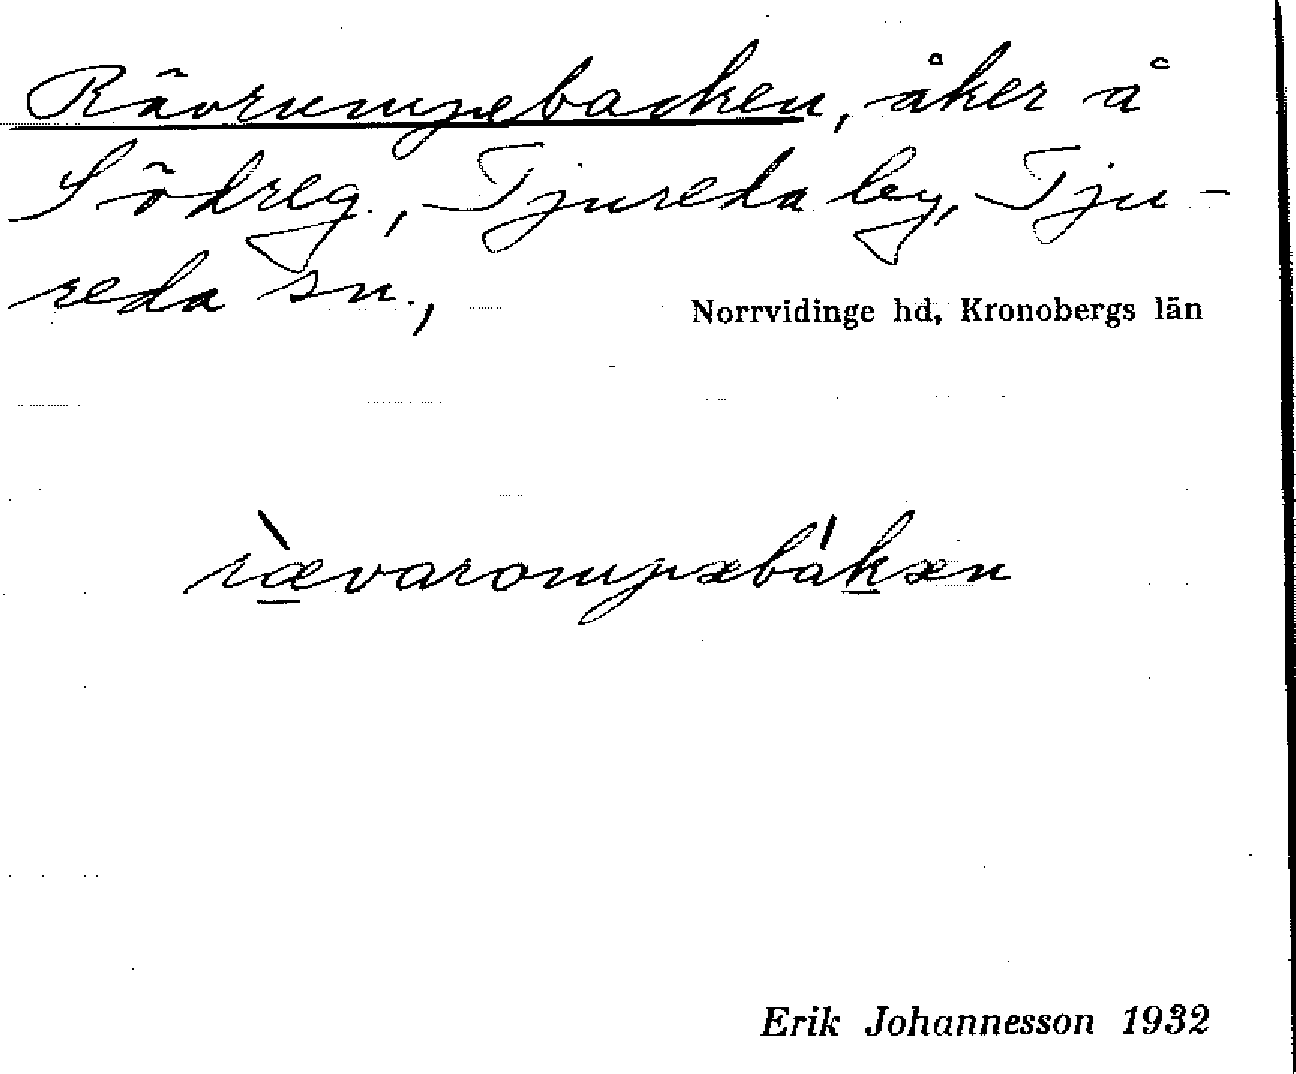 Rävrumpebacken, åker å
Södreg., Tjureda by, Tju-
reda sn.,
Norrvidinge hd, Kronobergs län
rævarompæbakæn
Erik Johannesson 1932